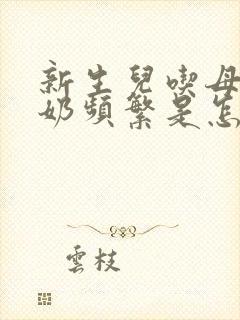 新生兒喫母
奶頻繁是怎
雲枝